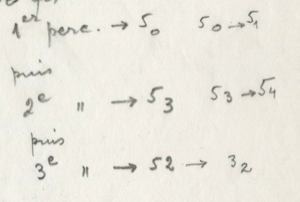 1er perc. → 5₀ 5₀ → 5₁
puis
2e " → 5₃ 5₃ → 5₄
puis
3e " → 52 → 3₂